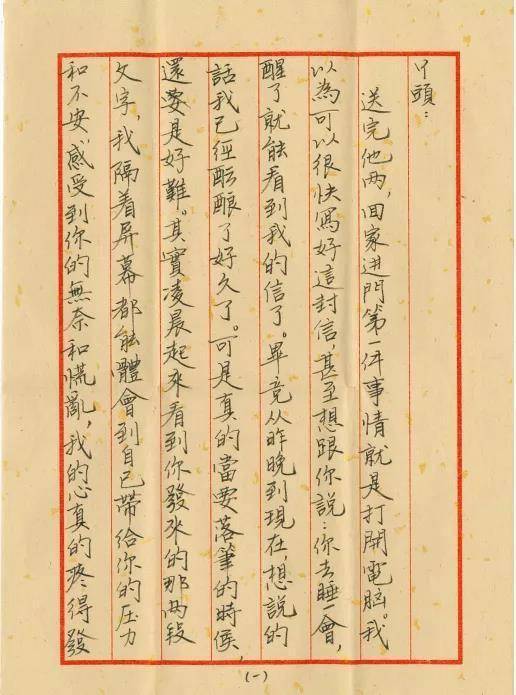 丫頭：
送完他两，回家进門第一件事情就是打開電脑。我
以為可以很快寫好這封信，甚至想跟你說：你去睡一會，
醒了就能看到我的信了。畢竟从昨晚到现在，想說的
話我已經醖酿了好久了。可是真的當要落筆的時侯，
還是好難。其實凌晨起來看到你發來的那两段
文字，我隔着屏幕都能體會到自己帶給你的压力
和不安，感受到你的無奈和慌亂，我的心真的疼得發
（一）